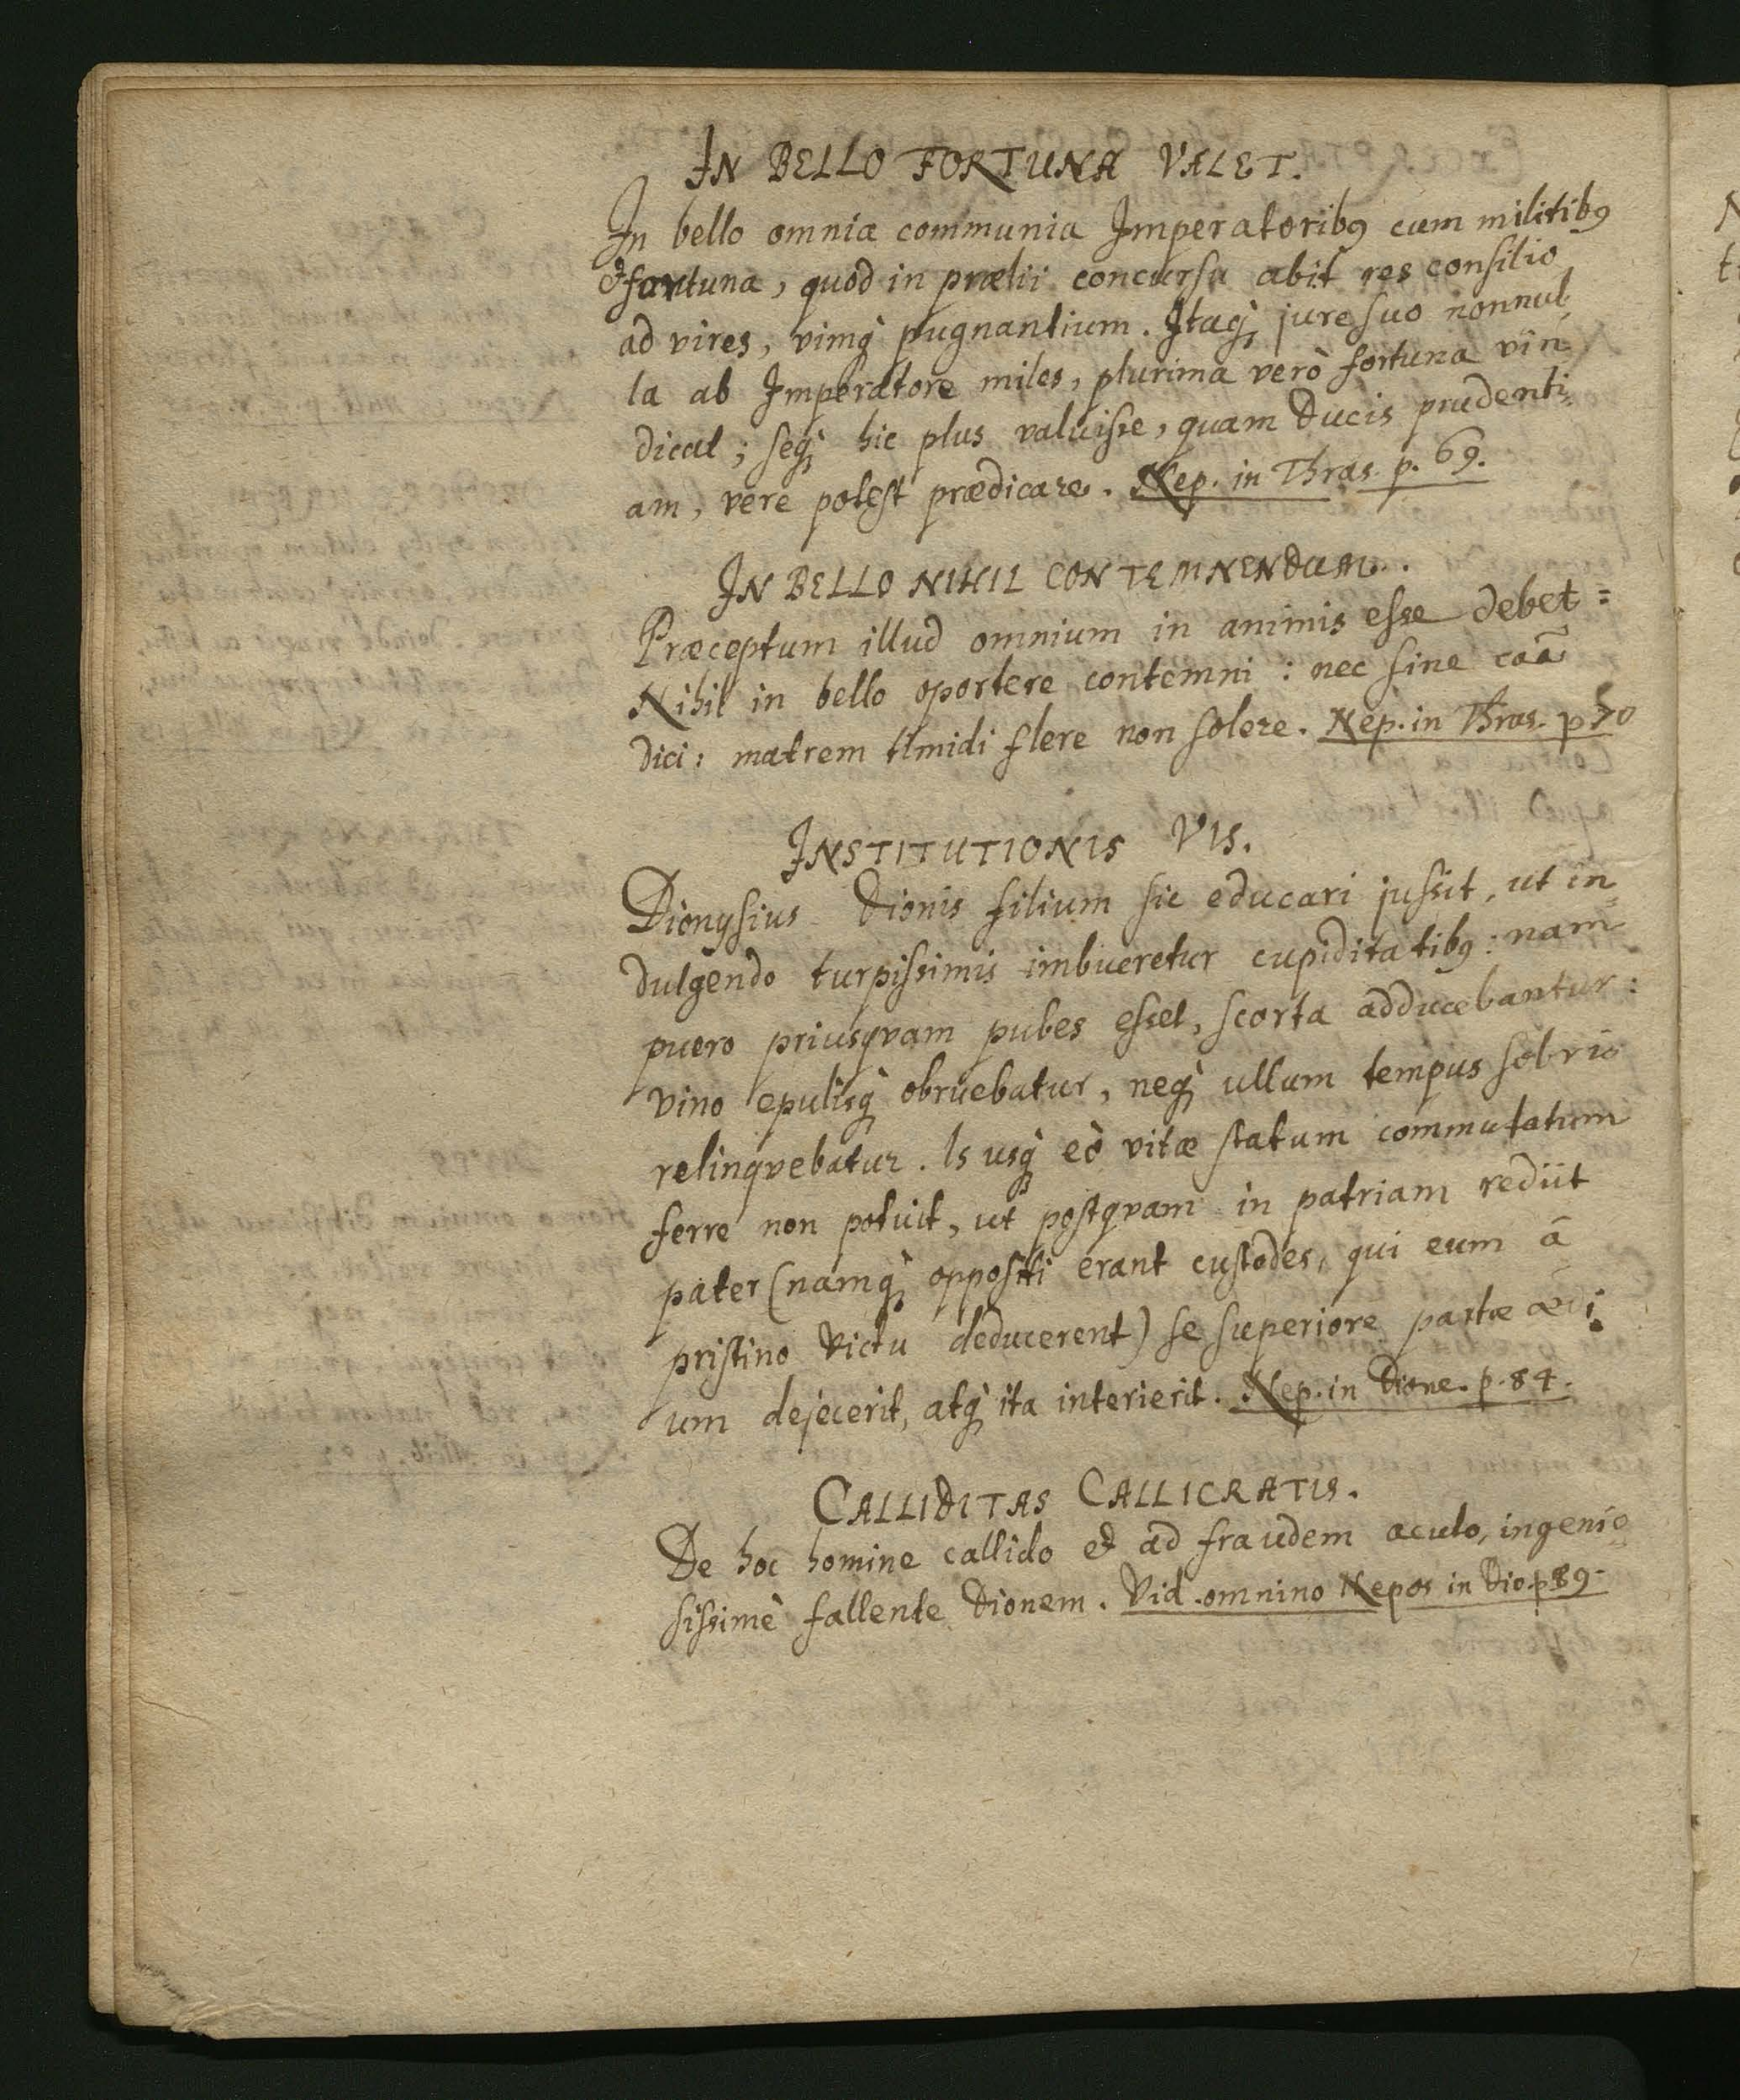 IN BELLO FORTUNA VALET.
In bello omnia communia Imperatoribꝰ cum militibꝰ
& fortuna, quod in prælii concursu abit res consilio
ad vires, vimq̀ pugnantium. Itaq̀ jure suo nonnul
la ab Imperatore miles, plurima verò fortuna vin
dicat; seq̀ hic plus valuisse, quam Ducis prudenti
am, vere potest prædicare. Nep. in Thras. p. 69.
IN BELLO NIHIL CONTEMNENDUM.
Præceptum illud omnium in animis esse debet =
Nihil in bello oportere contemni: nec sine caã
dici: matrem timidi flere non solere. Nep. in Thras. p 70
INSTITUTIONIS VIS.
Dionysius Dionis filium sic educari jussit, ut in=
dulgendo turpissimis imbueretur cupiditatibꝰ: nam
puero priusqvam pubes esset, scorta adducebantur:
vino epulisq̀ obruebatur, neq̀ ullum tempus sobrio
relinqvebatur. Is usq̀ eò vitæ statum commutatum
ferre non potuit, ut postqvam in patriam rediit
pater (namq̀ oppositi erant custodes, qui eum à
pristino victu deducerent) se superiore partæ ædi
um dejecerit, atq̀ ita interierit. Nep. in Dione. p. 84.
CALLIDITAS CALLICRATIS.
De hoc homine callido & ad fraudem acuto, ingenio=
sissimè fallente Dionem. Vid. omnino Nepos in Dio. p 89.